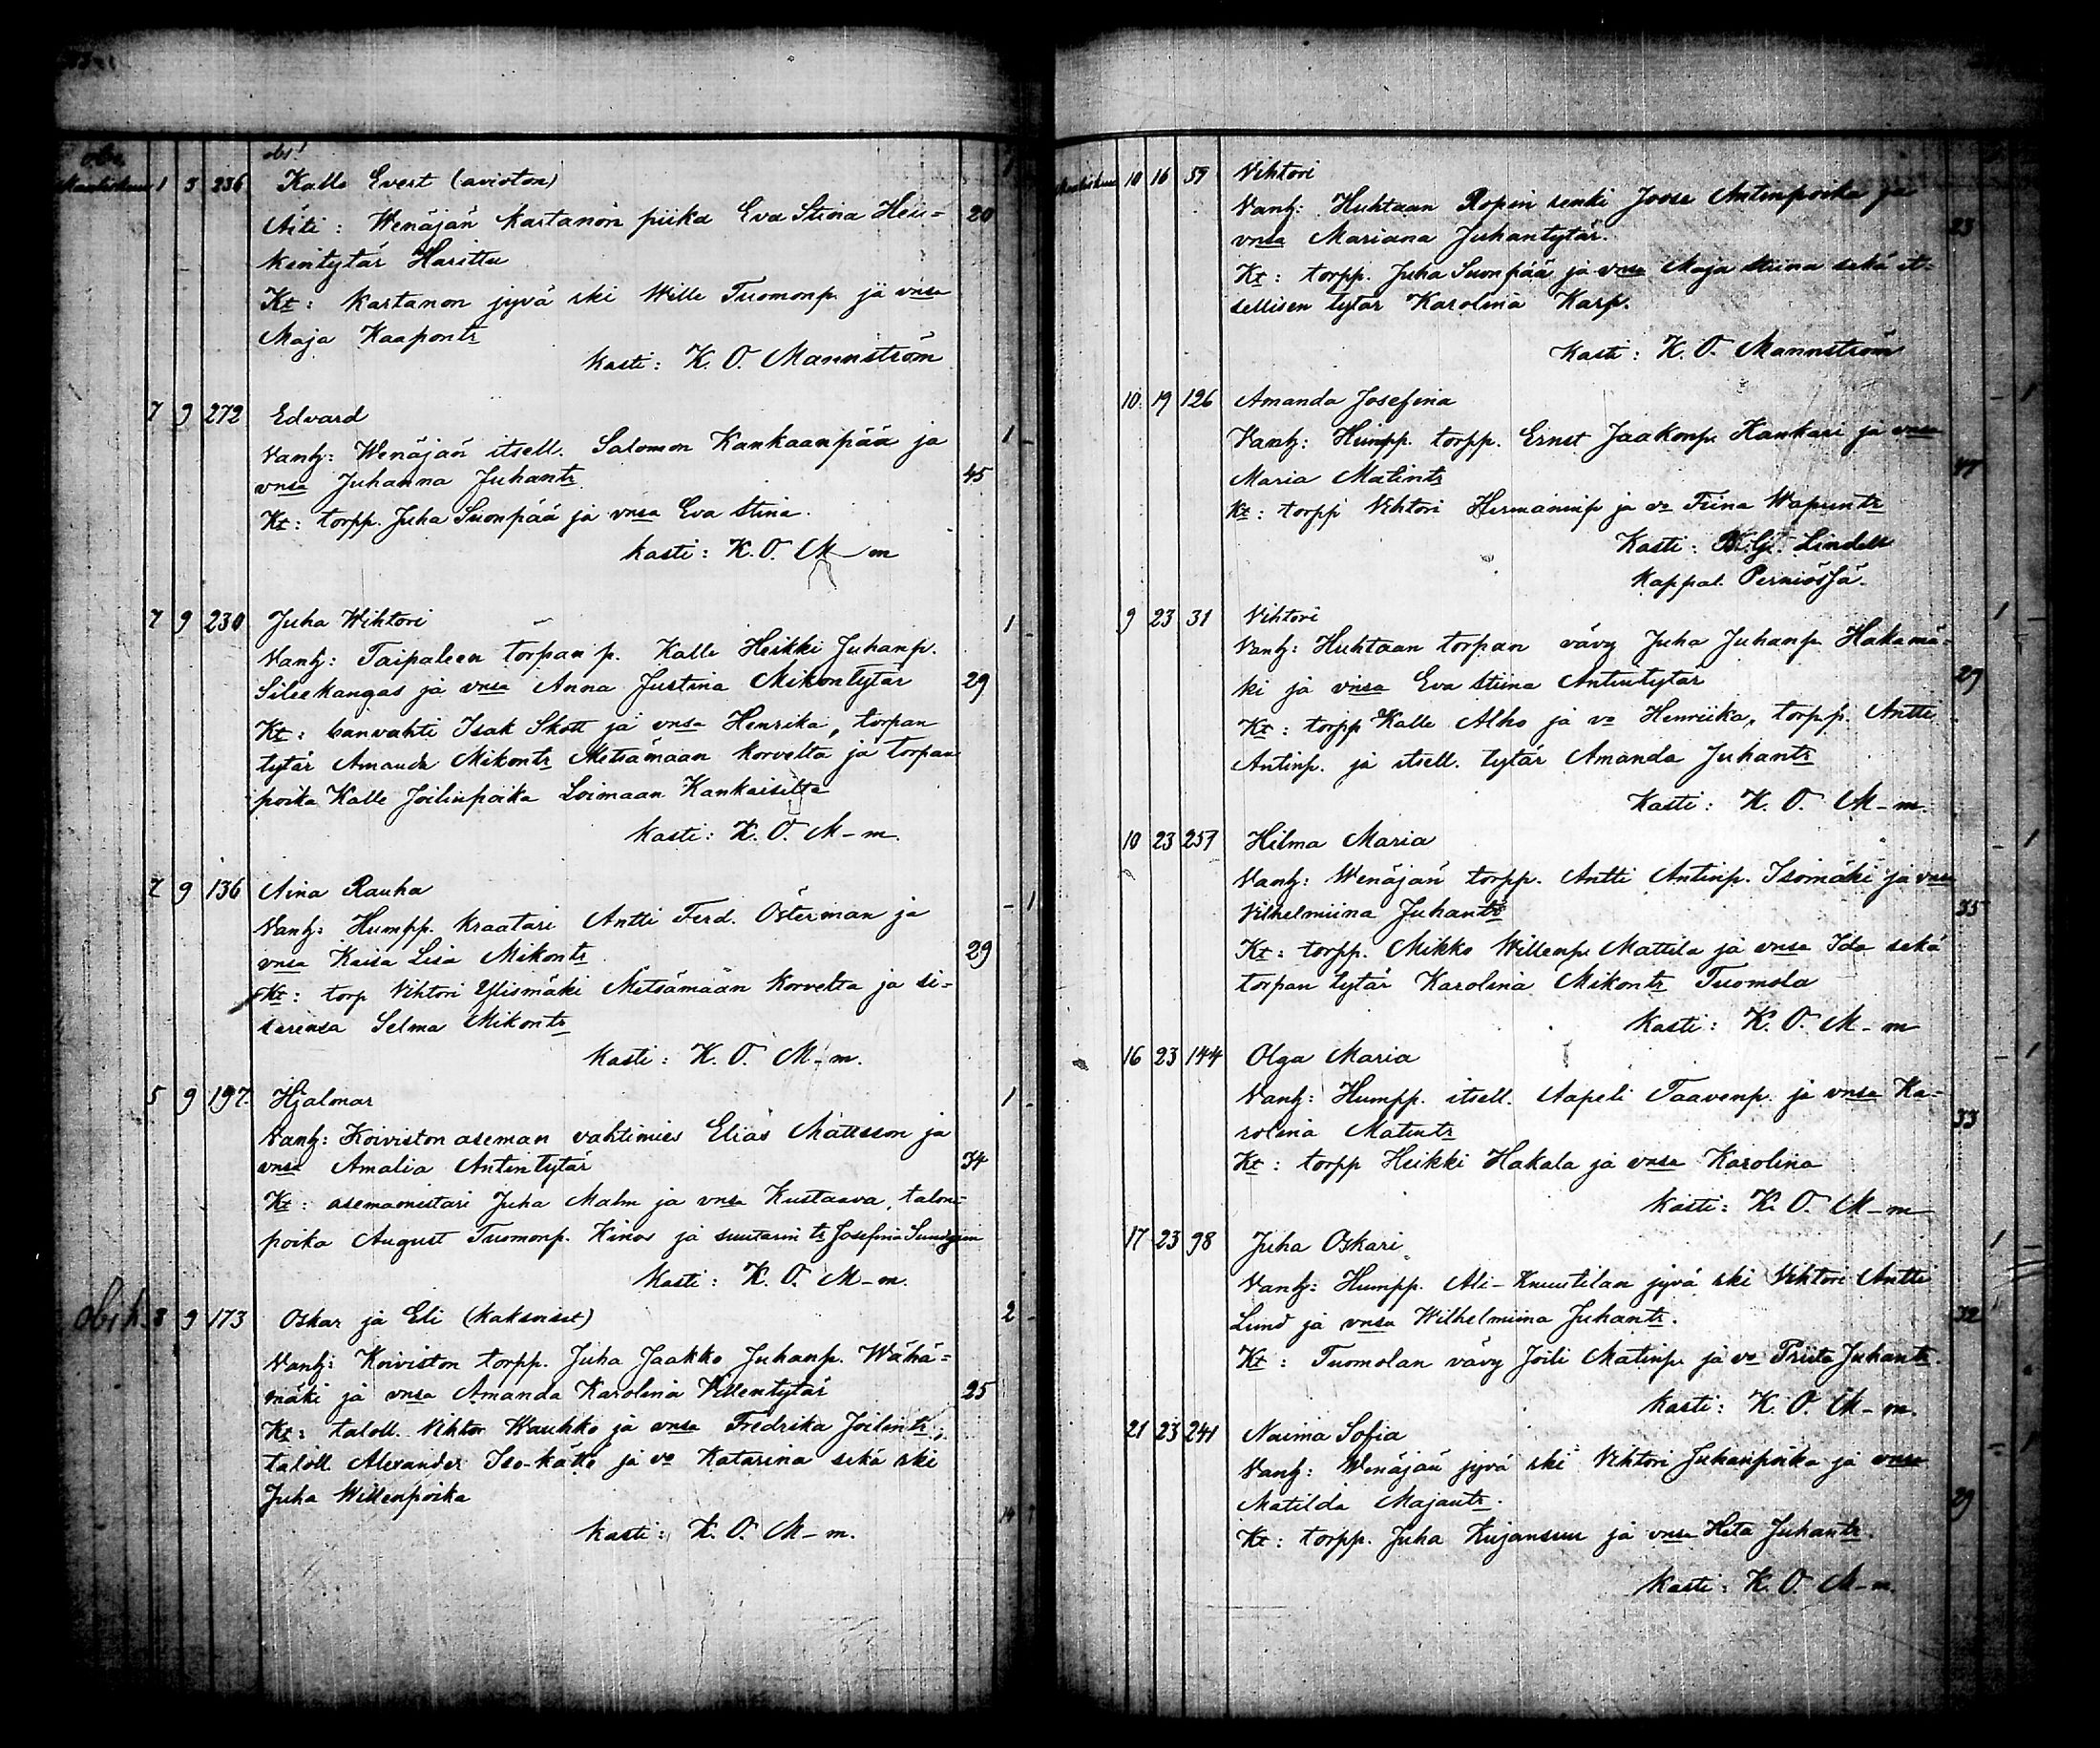 obs!
Maaliskuu 1 3 236 Kalle Evert (avioton) 1
Äiti: Wenäjän kartanon piika Eva Stina Hei= 20
kintytär Harittu
Kt: Kartanon jyvä ski Wille Tuomonp. ja vnsa
Maja Kaapontr
Kasti: K. O. Mannström
7 9 272 Edvard
Vanh: Wenäjän itsell. Salomon Kankaanpää ja 1 -
vnsa Juhanna Juhantr 45
Kt: torpp. Juha Suonpää ja vnsa Eva Stina.
Kasti: K. O. M—m
7 9 230 Juha Wihtori 1 -
Vanh: Taipaleen torpan p. Kalle Heikki Juhanp.
Silokangas ja vnsa Anna Justina Mikontytär 29
Kt: banvahti Isak Skott ja vnsa Henrika, torpan
tytär Amanda Mikontr Metsämaan Korvelta ja torpan
poika Kalle Joilinpoika Loimaan Kankaiselta
Kasti: K. O. M-m.
7 9 136 Aina Rauha - 1
Vanh: Humpp. kraatari Antti Ferd. Österman ja
vnsa Kaisa Lisa Mikontr 29
Kt: torp Vihtori Ylismäki Metsämään Korvelta ja si=
sarensa Selma Mikontr
Kasti: K. O. M-m.
5 9 197. Hjalmar 1 -
Vanh: Koiviston aseman vahtimies Elias Mattsson ja
vnsa Amalia Antintytär 34
Kt: asemamestari Juha Malm ja vnsa Kustaava, talon=
poika August Tuomonp. Kinos ja suutarin tr Josefina Sundgren
Kasti: K. O. M-m.
8 9 173 Oskar ja Eli (kaksoiset) 2 -
Vanh: Koiviston torpp. Juha Jaakko Juhanp. Wähä=
mäki ja vnsa Amanda Karolina Villentytär 25
Kt: taloll. Vihtor Wauhko ja vnsa Fredrika Joilintr,
taloll. Alexander Iso-kättö ja vo Katarina sekä ski
Juha Willenpoika
Kasti: K. O. M-m.
Maaliskuu 10 16 59 Vihtori
Vanh: Huhtaan Ropin renki Joose Antinpoika ja
vnsa Mariana Juhantytär. 23
Kt: torpp. Juha Suonpää ja vnsa Maja Stiina sekä it=
sellisen tytär Karolina Karp.
Kasti: K. O. Mannström
10 19 126 Amanda Josefina - 1
Vanh: Humpp. torpp. Ernst Jaakonp. Kankari ja vnsa
Maria Matintr
Kt: torpp Vihtori Hermaninp ja vo Fiina Wapuntr
Kasti: K. G. Lindell
Kappal. Perniössä.
9 23 31 Vihtori 1 -
Vanh: Huhtaan torpan vävy Juha Juhanp. Hakamä=
ki ja vnsa Eva Stiina Antintytär 29
Kt: torpp Kalle Alho ja vo Henriika, torpp. Antti
Antinp. ja itsell. tytär Amanda Juhantr
Kasti: K. O. M-m.
10 23 257 Hilma Maria - 1
Vanh: Wenäjän torpp. Antti Antinp. Isomäki ja vnsa
Vilhelmiina Juhantr 35
Kt: torpp. Mikko Willenp. Mattila ja vnsa Ida sekä
torpan tytär Karolina Mikontr Tuomola
Kasti: K. O. M-m
16 23 144 Olga Maria - 1
Vanh: Humpp. itsell. Aapeli Taavenp. ja vnsa Ka=
rolina Matintr 33
Kt: torpp Heikki Hakala ja vnsa Karolina
Kasti: K. O. M-m
17 23 98 Juha Oskari 1 -
Vanh: Humpp. Ali-Knuutilan jyvä ski Vihtori Antti
Lund ja vnsa Wilhelmiina Juhantr. 32
Kt: Tuomolan vävy Joili Matinp. ja vo Priita Juhantr.
Kasti: K. O. M-m.
21 23 241 Naima Sofia - 1
Vanh: Wenäjän jyvä ski Vihtori Juhanpoika ja vnsa
Matilda Majantr. 29
Kt: torpp. Juha Kujansuu ja vnsa Heta Juhantr.
Kasti: K. O. M-m.